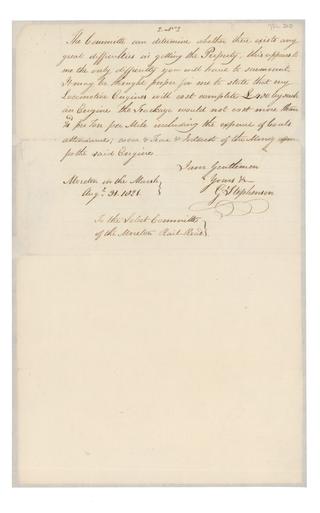 The Committee can determine whether there exists any
great difficulties in getting the Property, this appears to
me the only difficulty you will have to surmount.
It may be thought proper for me to state that my
Locomotive Engines will cost complete £400 by such
an Engine the Trackage would not cost more than
pr Ton per Mile including the expence of Coals
attendance, wear & Tear & Interest of the Money upon
the said Engine
I am Gentlemen
Yours &c
G Stephenson
Moreton in the Marsh
Augt. 31. 1821.
To the Select Committee
of the Moreton Rail Road